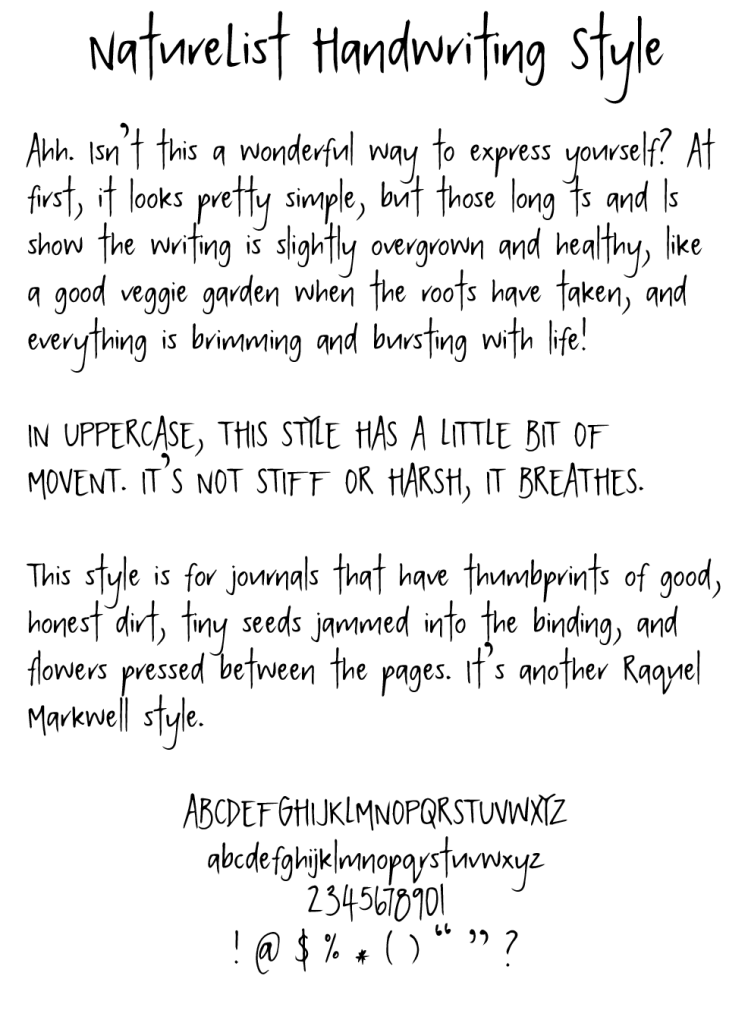 NatureList Handwriting Style
Ahh. Isn't this a wonderful way to express yourself? At
first, it looks pretty simple, but those long ts and ls
show the writing is slightly overgrown and healthy, like
a good veggie garden when the roots have taken, and
everything is brimming and bursting with life!
IN UPPERCASE, THIS STYLE HAS A LITTLE BIT OF
MOVENT. IT'S NOT STIFF OR HARSH, IT BREATHES.
This style is for journals that have thumbprints of good,
honest dirt, tiny seeds jammed into the binding, and
flowers pressed between the pages. It's another Raquel
Markwell style.
ABCDEFGHIJKLMNOPQRSTUVWXYZ
abcdefghijklmnopqrstuvwxyz
2345678901
! @ $ % * ( ) “ ” ?